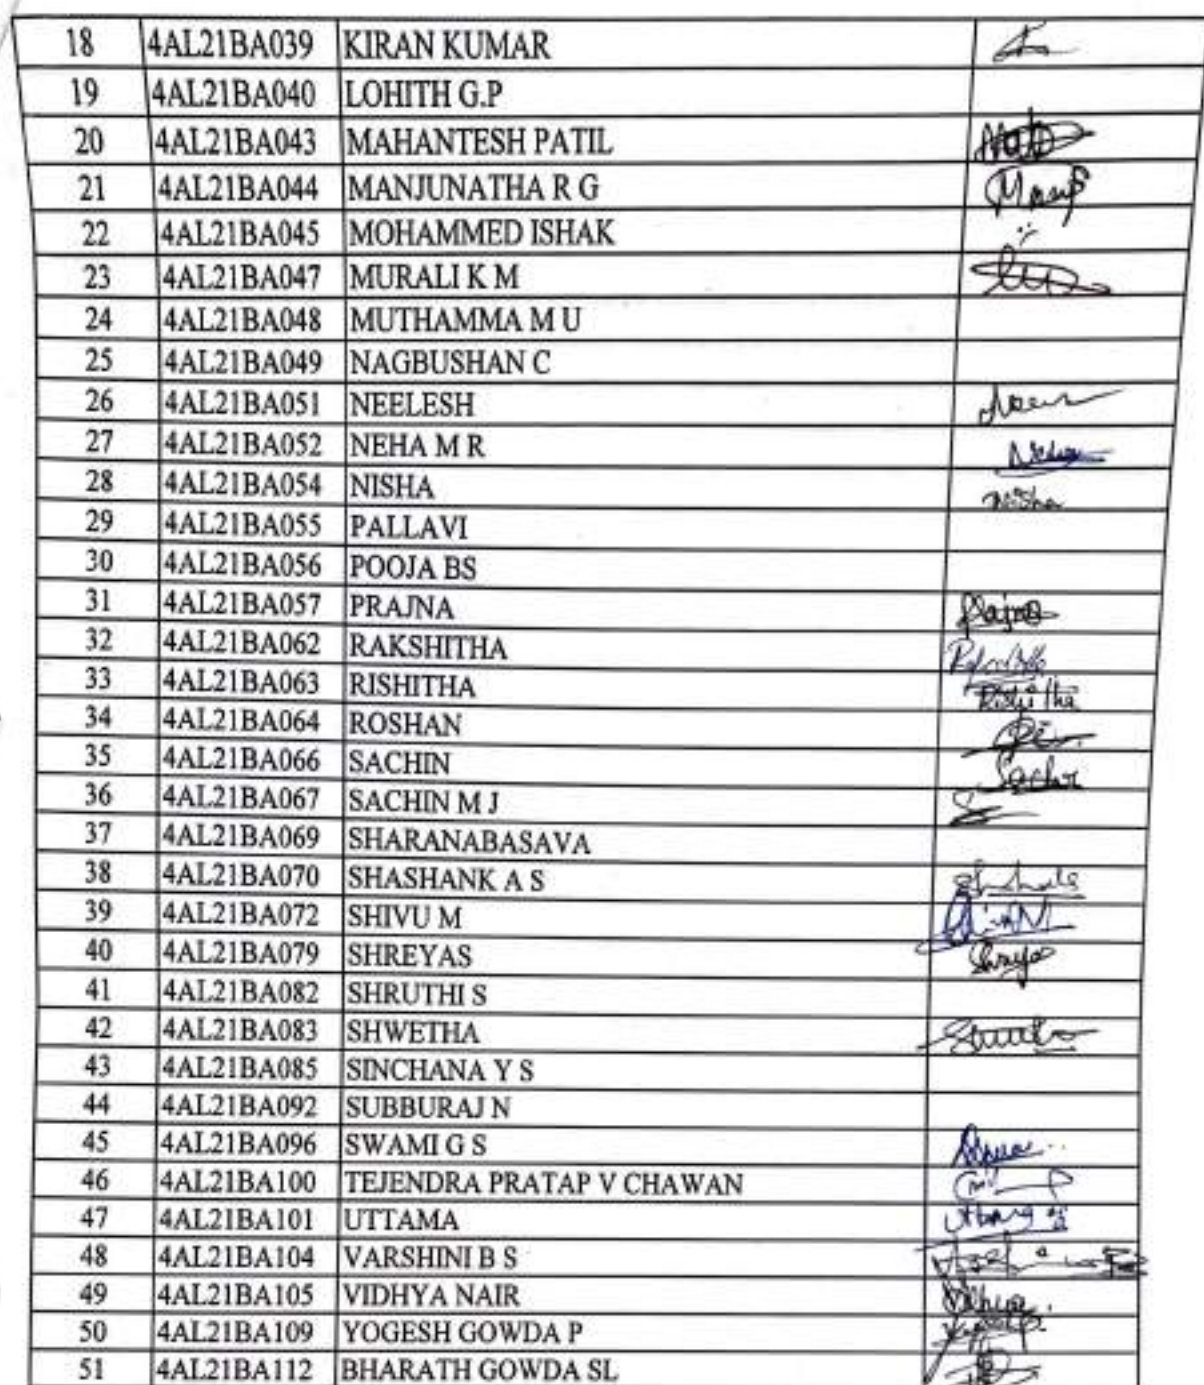 18 4AL21BA039 KIRAN KUMAR
19 4AL21BA040 LOHITH G.P
20 4AL21BA043 MAHANTESH PATIL
21 4AL21BA044 MANJUNATHA R G
22 4AL21BA045 MOHAMMED ISHAK
23 4AL21BA047 MURALI K M
24 4AL21BA048 MUTHAMMA M U
25 4AL21BA049 NAGBUSHAN C
26 4AL21BA051 NEELESH
27 4AL21BA052 NEHA M R
28 4AL21BA054 NISHA Nisha
29 4AL21BA055 PALLAVI
30 4AL21BA056 POOJA BS
31 4AL21BA057 PRAJNA Prajna
32 4AL21BA062 RAKSHITHA
33 4AL21BA063 RISHITHA Rishitha
34 4AL21BA064 ROSHAN
35 4AL21BA066 SACHIN Sachin
36 4AL21BA067 SACHIN M J
37 4AL21BA069 SHARANABASAVA
38 4AL21BA070 SHASHANK A S
39 4AL21BA072 SHIVU M
40 4AL21BA079 SHREYAS
41 4AL21BA082 SHRUTHI S
42 4AL21BA083 SHWETHA
43 4AL21BA085 SINCHANA Y S
44 4AL21BA092 SUBBURAJ N
45 4AL21BA096 SWAMI G S
46 4AL21BA100 TEJENDRA PRATAP V CHAWAN
47 4AL21BA101 UTTAMA
48 4AL21BA104 VARSHINI B S
49 4AL21BA105 VIDHYA NAIR
50 4AL21BA109 YOGESH GOWDA P
51 4AL21BA112 BHARATH GOWDA SL